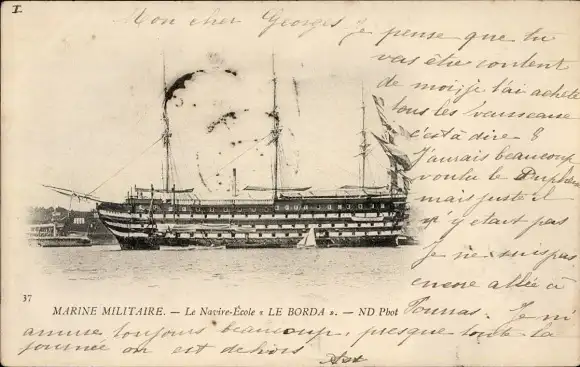 I.
Mon cher Georges Je pense que tu
vas être content
de moi je t'ai acheté
tous les vaisseaux
c'est à dire 8
J'aurais beaucoup
voulu le
mais juste il
n'y était pas
Je ne suis pas
encore allée à
37
MARINE MILITAIRE. — Le Navire-École « LE BORDA ». — ND Phot
Je m'
amuse toujours beaucoup, presque toute la
journée on est dehors